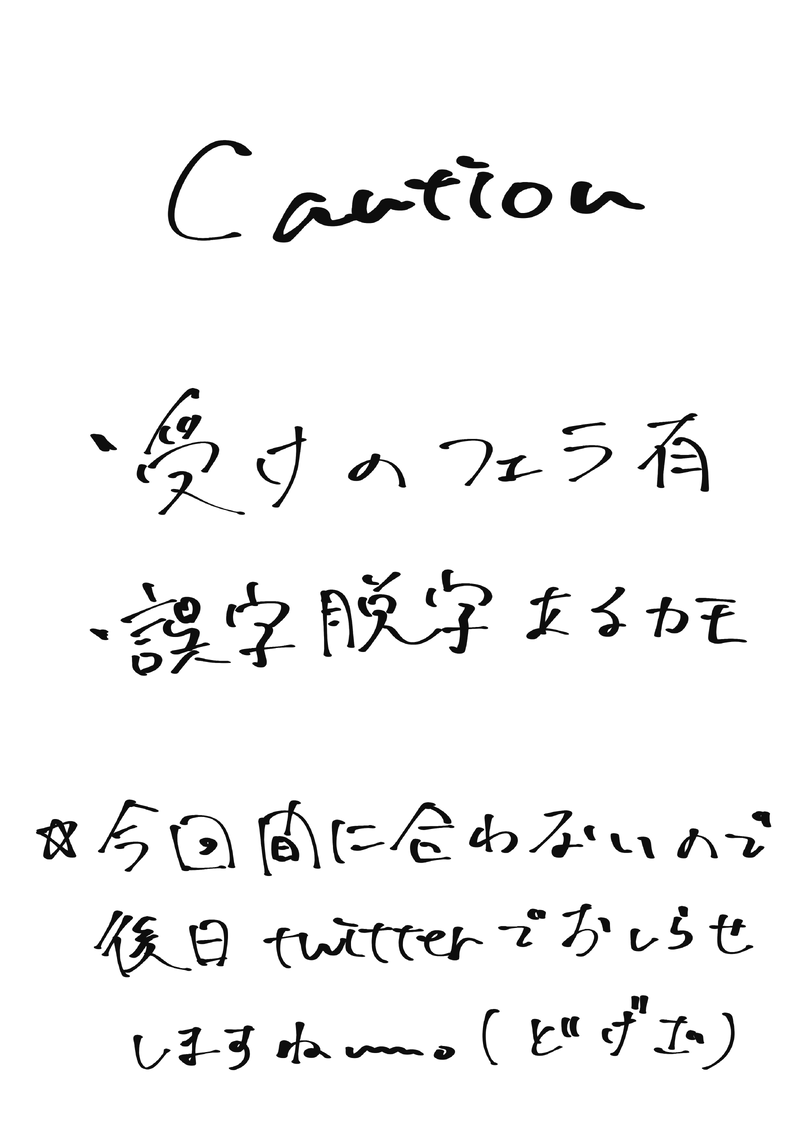 Caution
・受けのフェラ有
・誤字脱字あるカモ
☆今回間に合わないので
後日twitterでおしらせ
しますね〜。(どげ血)